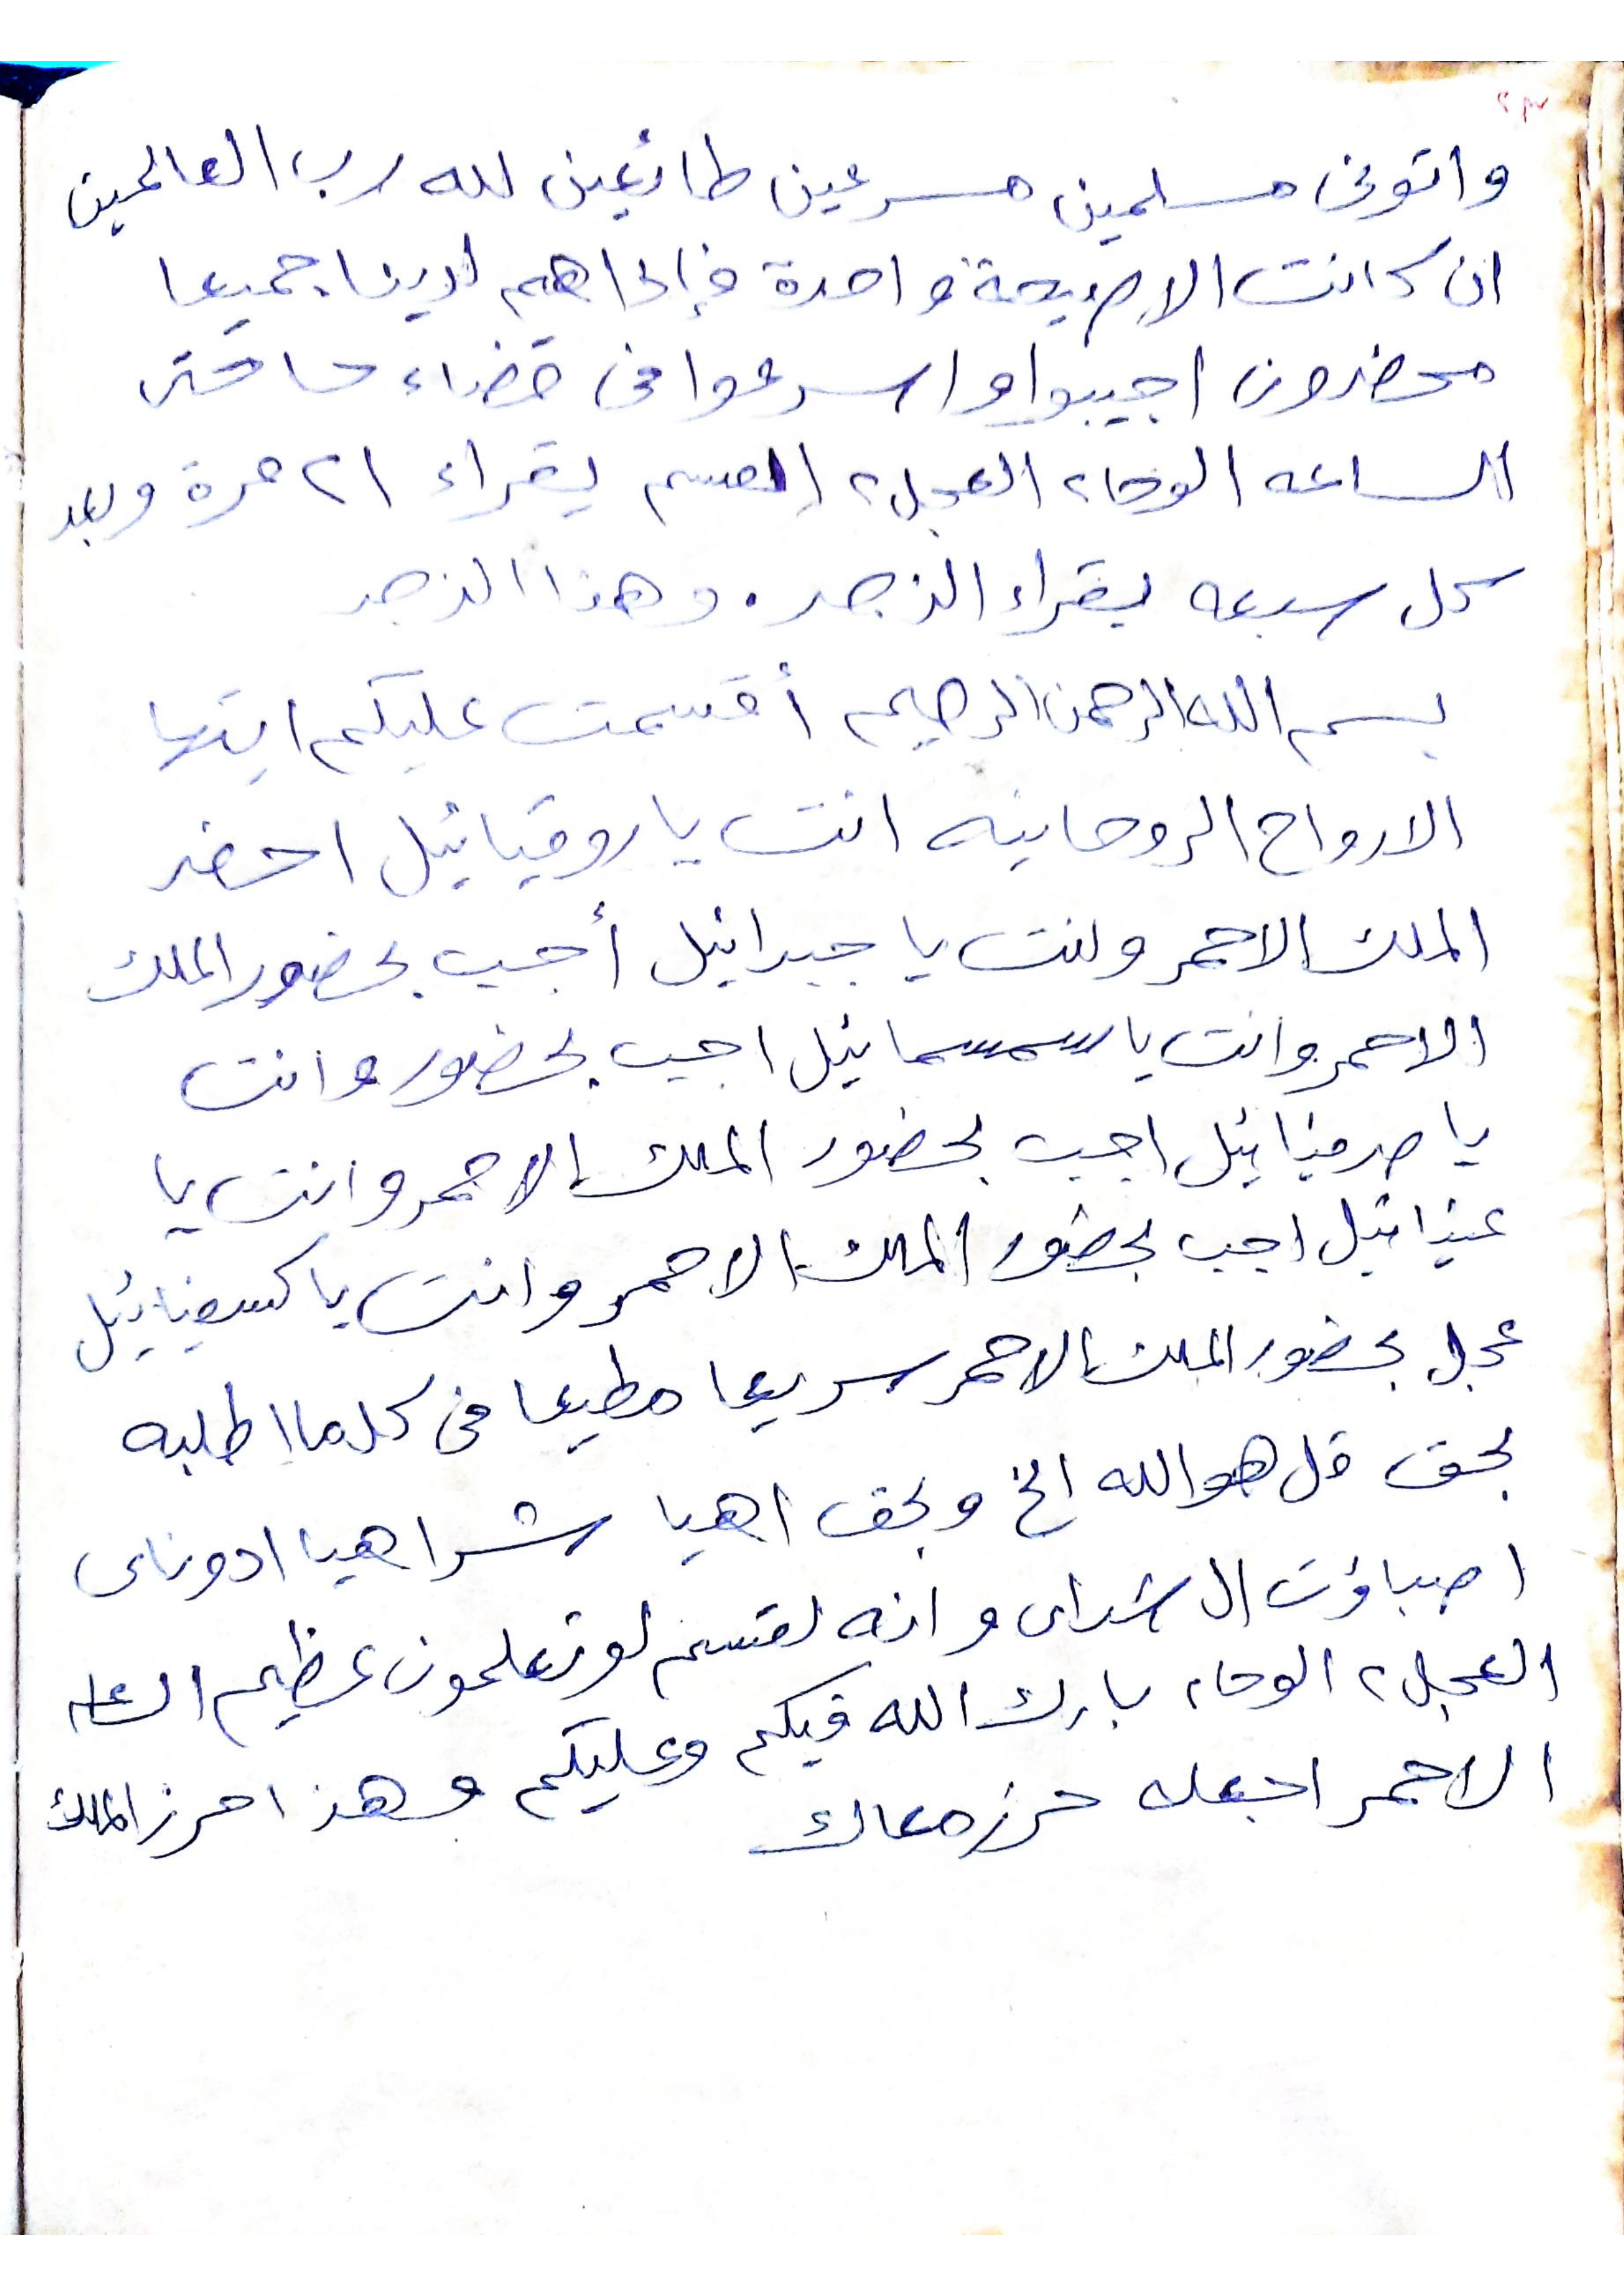 واتونى مسلمين مسرعين طائعين لله رب العالمين
ان كانت الا صيحة واحدة فإذا هم لدينا جميعا
محضرون اجيبوا واسرعوا فى قضاء حاجتى
الساعه الوحا٢ العجل٢ القسم يقراء ٢١ مرة وبعد
كل سبعه يقراء الزجر. وهذا الزجر
بسم الله الرحمن الرحيم أقسمت عليكم ايتها
الارواح الروحانيه انت يا روقيائيل احضر
الملك الاحمر وانت يا جبرائيل أجيب بحضور الملك
الاحمر وانت يا سمسمائيل اجيب بحضور وانت
يا صرفيائيل اجيب بحضور الملك الاحمر وانت يا
عنيائيل اجيب بحضور الملك الاحمر وانت يا كسفيائيل
عجل بحضور الملك الاحمر سريعا مطيعا فى كلما اطلبه
بحق قل هو الله الخ وبحق اهيا شراهيا ادوناى
اصباؤت ال شداى وانه لقسم لو تعلمون عظيم
العجل٢ الوحا٢ بارك الله فيكم وعليكم وهذا حرز الملك
الاحمر اجعله حرز معاك